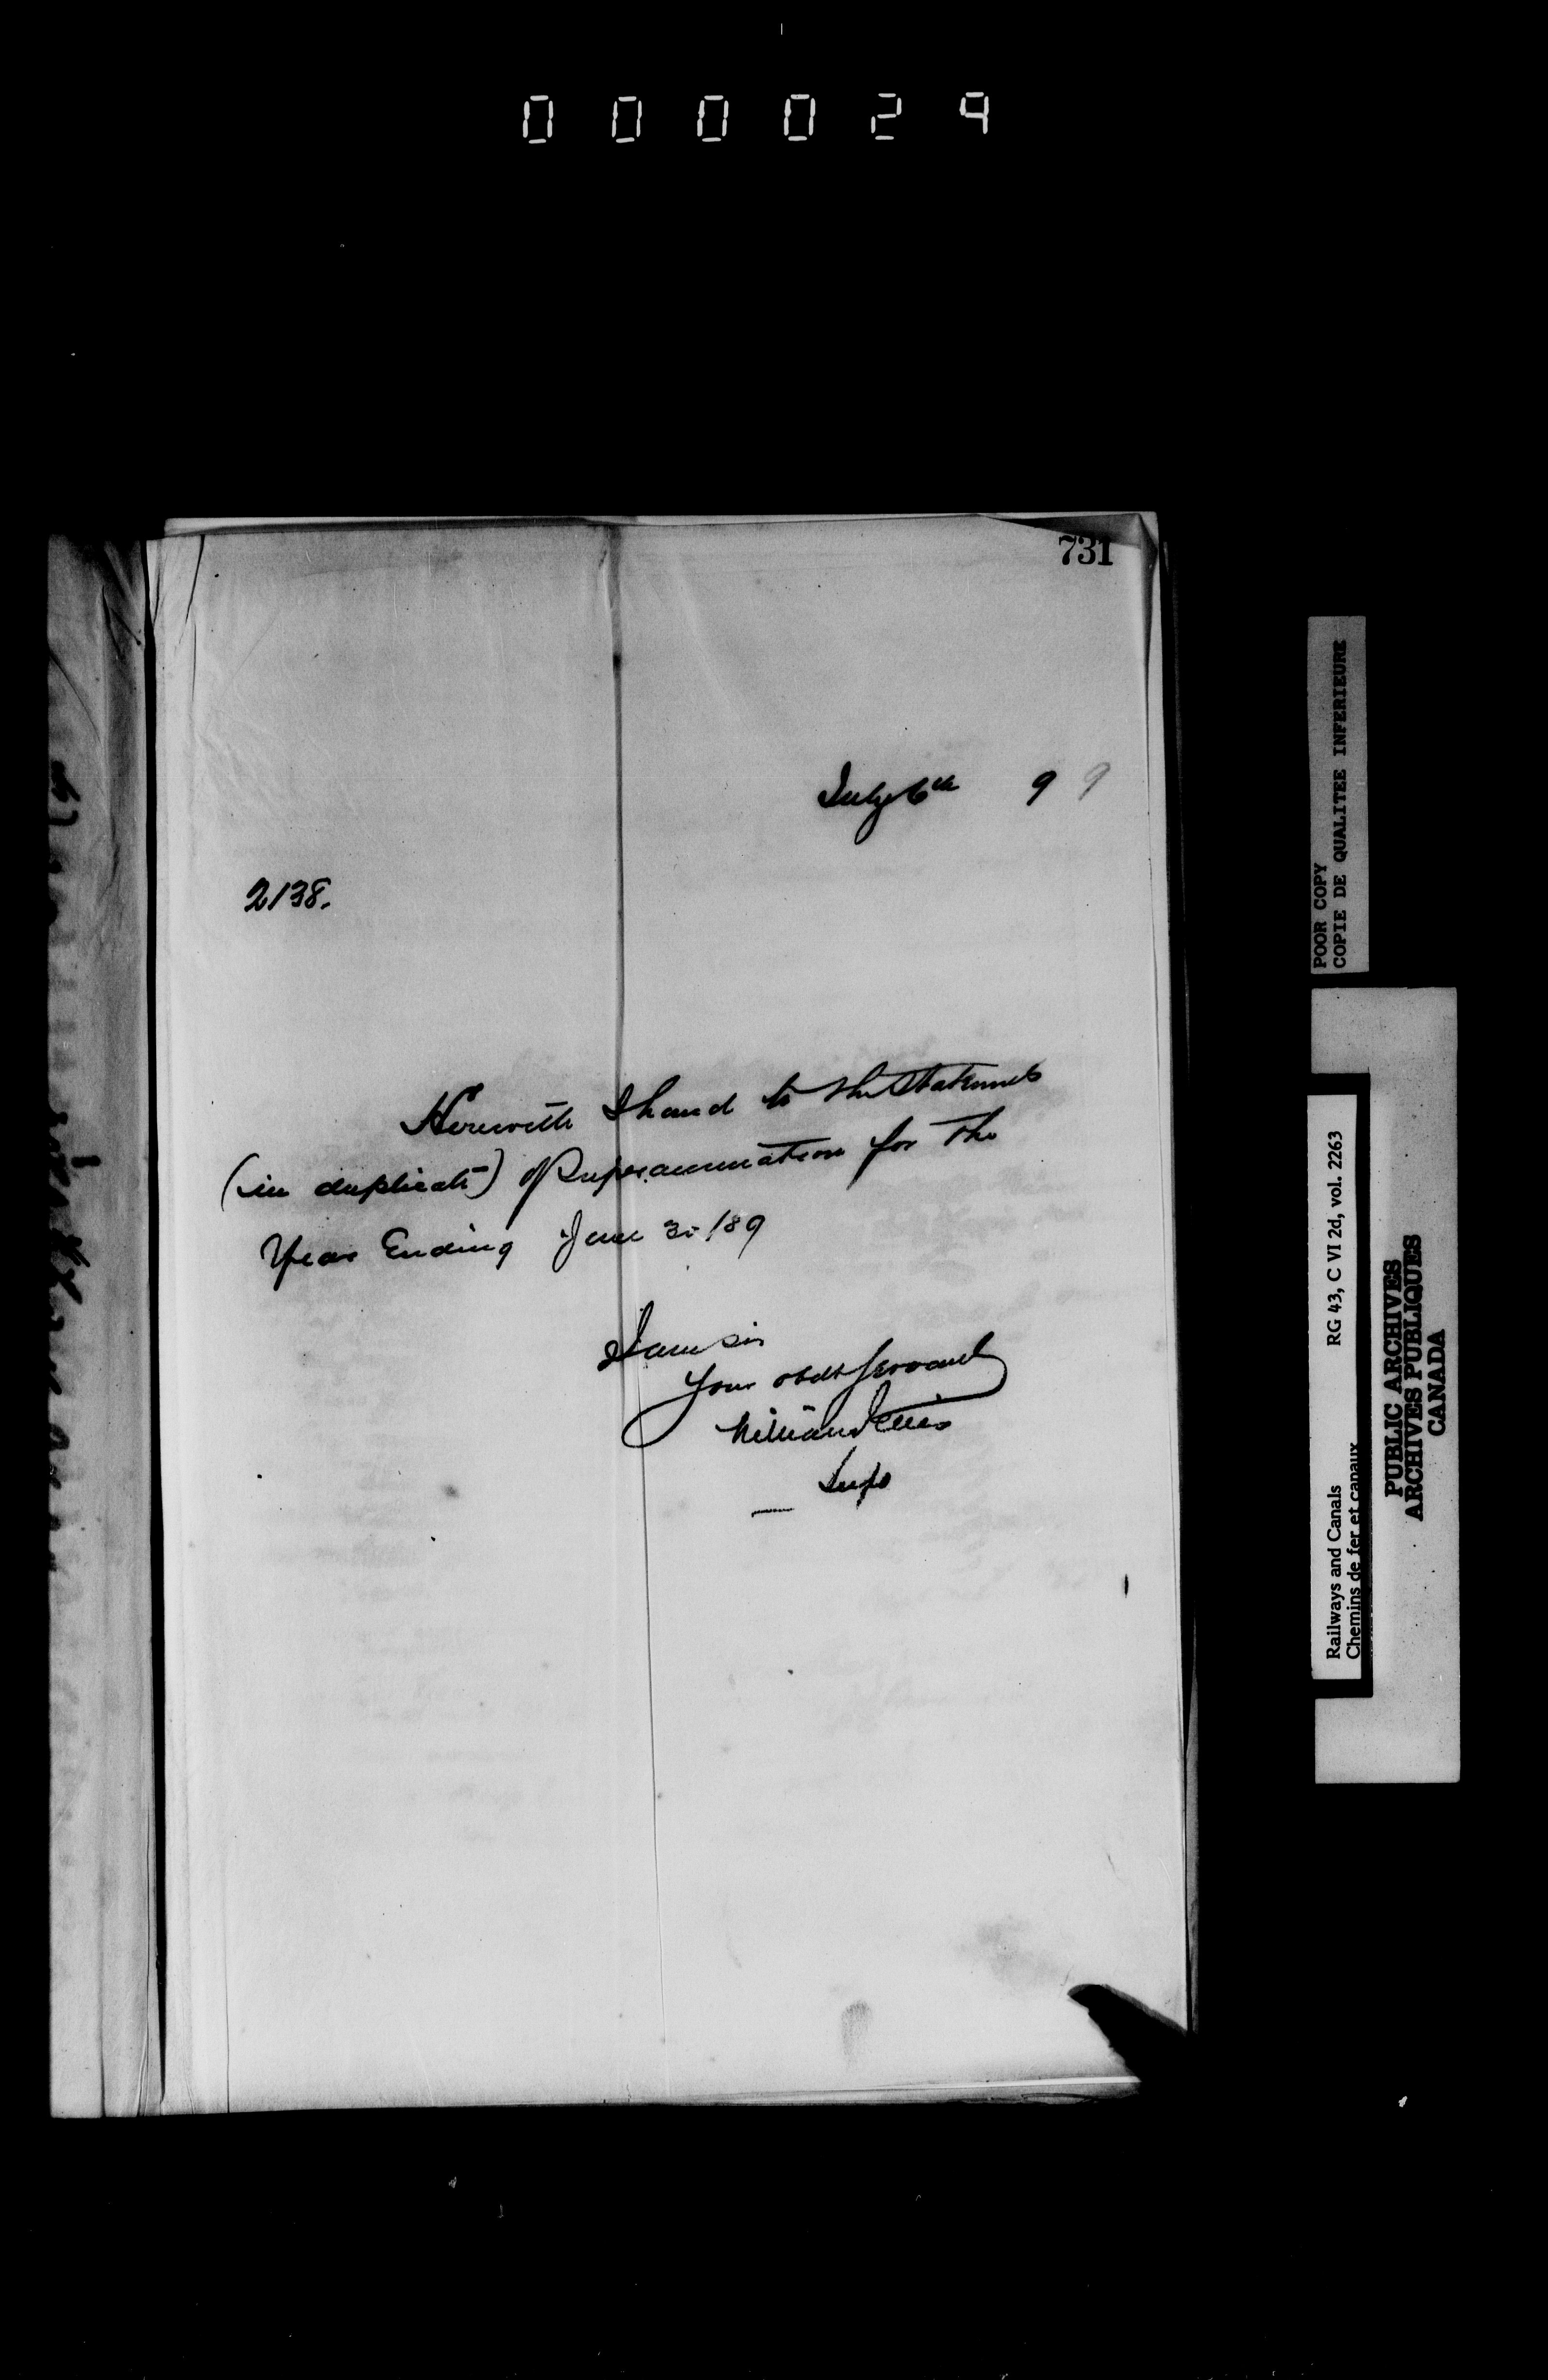 000029
731
July 6th 9 9
2138.
Herewith I hand to the Statements
(in duplicate) of Superannuation for the
Year Ending June 30/89
I am Sir
Your obdt Servant
William Ellis
Supt
POOR COPY
COPIE DE QUALITEE INFERIEURE
Railways and Canals RG 43, C VI 2d, vol. 2263
Chemins de fer et canaux
PUBLIC ARCHIVES
ARCHIVES PUBLIQUES
CANADA